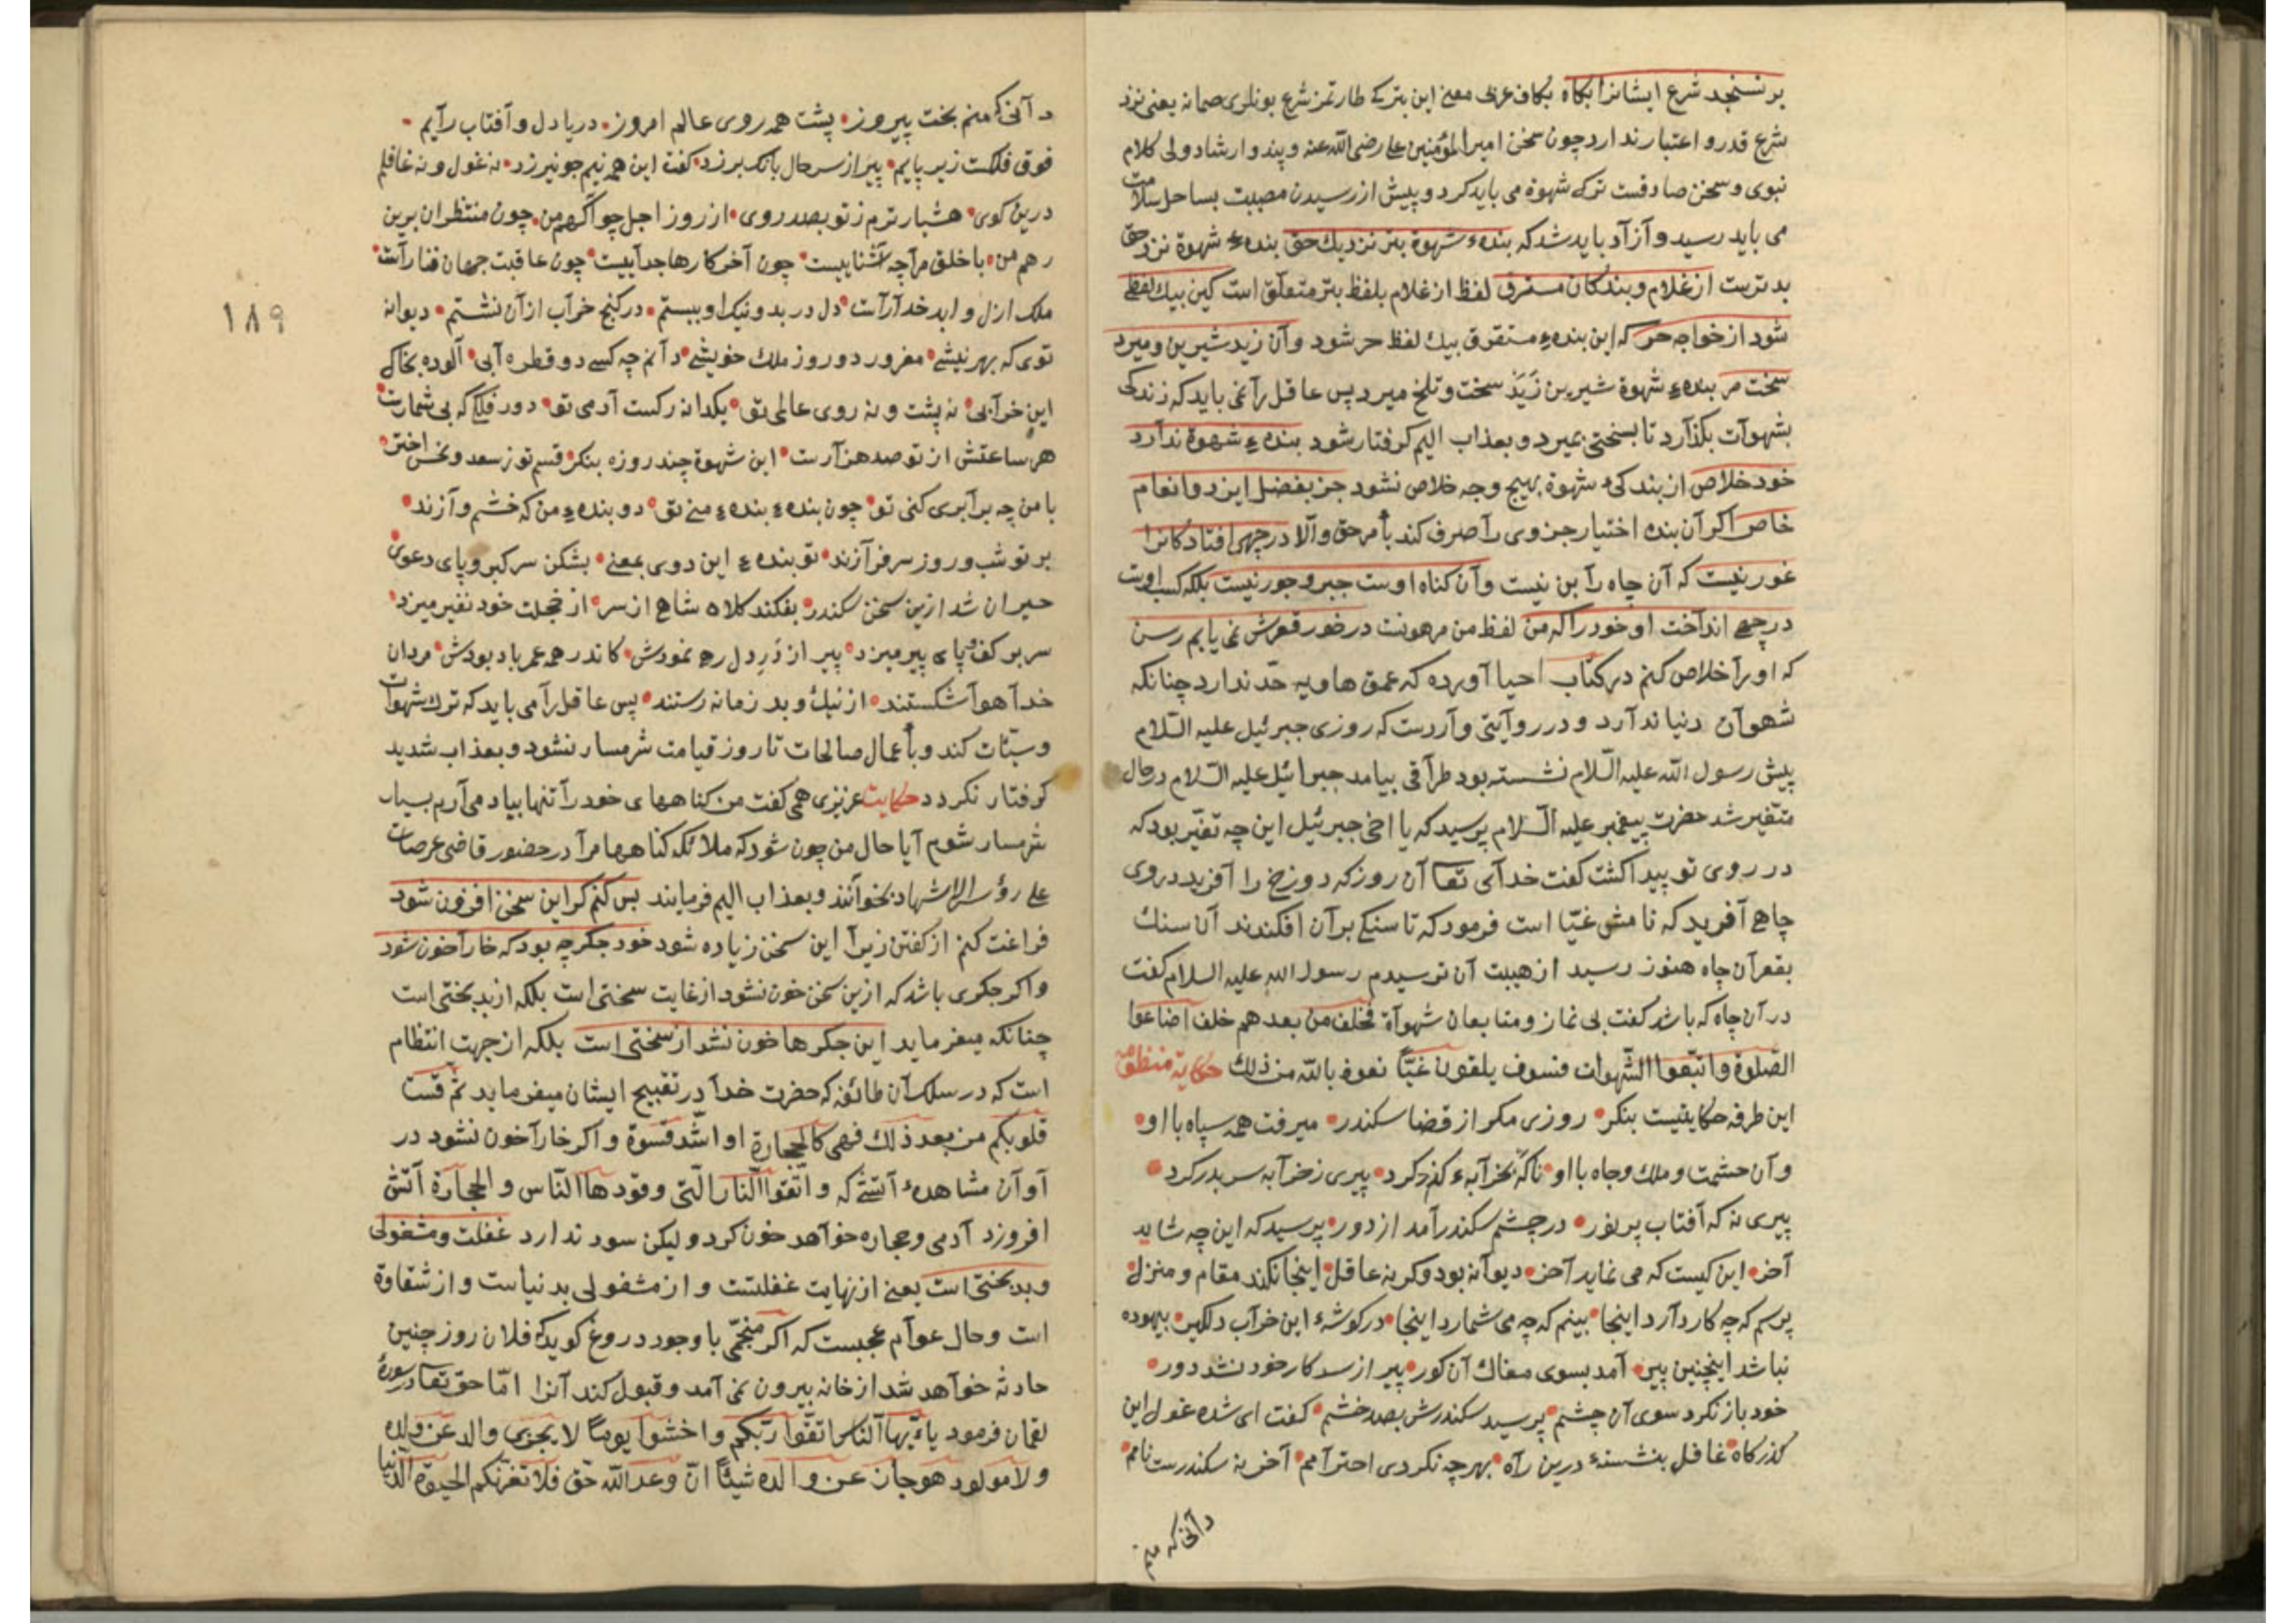 بر نسنجد شرع ایشانرا بکاه بکاف عربی معنی این بترکی طارتمز شرع بونلری صمانه یعنی نزد
شرع قدر و اعتبار ندارد چون سخن امیر المؤمنین علی رضی الله عنه و پند و ارشاد ولی کلام
نبوی و سخن صادقست ترک شهوة می باید کرد و پیش از رسیدن مصیبت بساحل سلامت
می باید رسید و آزاد باید شد که بندهء شهوة بتر نزدیك حق بندهء شهوة نزد حق
بدترست از غلام و بندکان مسترق لفظ از غلام بلفظ بتر متعلّق است کین بیك لفظی
شود از خواجه حر که این بندهء مسترق بیك لفظ حر شود وآن زید شیرین و میرد
سخت مر بندهء شهوة شیرین زَیَد سخت و تلخ میرد پس عاقل را نمی باید که زندکی
بشهوآت بکذآرد تا بسختی بمیرد و بعذاب الیم کرفتار شود بندهء شهوة ندآرد
خود خلاص از بندکیء شهوة بهیج وجه خلاص نشود جز بفضل ایزد و انعام
خاص اکر آن بنده اختیار جزوی رآ صرف کند بأمر حق وآلا در چهی افتاد کانرا
غور نیست که آن چاه رآ بن نیست وآن کناه اوست جبر و جور نیست بلکه کسب اوست
در چهی اندآخت او خود را که من لفظ من مرهونست در خور قعرش نمی یابم رسن
که او رآ خلاص کنم در کتاب احیا آورده که عمق هاویه حدّ ندارد چنانکه
شهوآن دنیا ندآرد و در روآیتی وآردست که روزی جبرئیل علیه السّلام
پیش رسول الله علیه السّلام نشسته بود طرآقی بیامد جبرائیل علیه السّلام در حال
متغیر شد حضرت پیغمبر علیه السّلام پرسید که یا اخی جبرئیل این چه تغیّر بود که
در روی تو پیدا کشت کفت خدآی تعا آن روز که دوزخ را آفرید در وی
چاهی آفرید که نامش غیّا است فرمود که تا سنکی بر آن افکندند آن سنك
بقعر آن چاه هنوز رسید از هیبت آن ترسیدم رسول الله علیه السلام کفت
در آن چاه که باشد کفت بی نماز و متابعان شهوآة فخلف من بعدهم خلف اضاعوا
الصّلوة واتبّعوا الشّهوات فسوف یلقون غیّاً نعوذ بالله من ذلك حکایة منظومه
این طرفه حکایتیست بنکر روزی مکر از قضا سکندر میرفت همه سپاه با او
وآن حشمت و ملك و جاه با او ناکه بخرآبهء کذر کرد پیری ز خرآبه سر بدر کرد
پیری نه که آفتاب پر نور در چشم سکندر آمد از دور پرسید که این چه شاید
آخر این کیست که می نماید آخر دیوآنه بود و کر نه عاقل اینجا نکند مقام و منزل
پرسم که چه کار دآرد اینجا بینم که چه می شمارد اینجا در کوشهء این خرآب دلکیر بیهوده
نباشد اینچنین پیر آمد بسوی مغاك آن کور پیر از سر کار خود نشد دور
خود باز نکرد سوی آن چشم پرسید سکندرش بصد خشم کفت ای شده غول این
کذرکاه غافل بنشستهء درین رآه بهر چه نکردی احترآمم آخر نه سکندرست نامم
دآنی که منم
دآنی که منم بخت پیروز پشت همه روی عالم امروز دریا دل و آفتاب رآیم
فوق فلکست زیر پایم پیر از سر حال بانك بر زد کفت این همه نیم جو نیرزد نه غول و نه غافلم
درین کوی هشیارترم ز تو بصد روی از روز اجل چو آکهم من چون منتظران برین
رهم من با خلق مرآ چه آشناییست چون آخر کارها جدآییست چون عاقبت جهان فنا رآست
ملك ازل و ابد خدآ رآست دل در بد و نیك او ببستم در کنج خرآب از آن نشستم دیوانه
توی که بهر نیشی مغرور دو روز ملك خویشی دآنم چه کسی دو قطره آبی آلوده بخاك
این خرآبی نه پشت و نه روی عالمی تو یکدانه رکست آدمی تو دور فلکی که بی شمارست
هر ساعتش از تو صد هزآرست این شهوة چند روزه بنکر قسم تو ز سعد و نحس اختر
با من چه برآبری کنی تو چون بندهء بندهء منی تو دو بندهء من که خشم و آزند
بر تو شب و روز سرفرآزند تو بندهء این دوی بمعنی بشکن سر کبر و پای دعوی
حیران شد ازین سخن سکندر بفکند کلاه شاهی از سر از خجلت خود نفیر میزد
سر بر کف پای پیر میزد پیر از دَرِ دل رهی نمودش کاندر همه عمر یاد بودش مردان
خدآ هوآ شکستند از نیك و بد زمانه رستند پس عاقل رآ می باید که ترك شهوات
و سیّئات کند و بأعمال صالحات تا روز قیامت شرمسار نشود و بعذاب شدید
کرفتار نکردد حکایت عزیزی همی کفت من کناههای خود رآ تنها بیاد می آرم بسیار
شرمسار شوم آیا حال من چون شود که ملائکه کناهها مرآ در حضور قاضی عرصات
علی رؤس الاشهاد بخوآنند و بعذاب الیم فرمایند بس کنم کر این سخن افزون شود
فراغت کنم از کفتن زیرآ این سخن زیاده شود خود جکر چه بود که خارآ خون شود
و اکر جکری باشد که ازین سخن خون نشود از غایت سختی است بلکه از بدبختی است
چنانکه میفرماید این جکرها خون نشد از سختی است بلکه از جهت انتظام
است که در سلك آن طائفه که حضرت خدآ در تقبیح ایشان میفرماید ثمّ قست
قلوبکم من بعد ذلك فهی کالحجارة او اشّد قسوة و اکر خارآ خون نشود در
آوآن مشاهدهء آتشی که و اتّقوا النّار الّتی وقودها النّاس و الحجارة آتش
افروزد آدمی و حجاره خوآهد خون کرد و لیکن سود ندارد غفلت و مشغولی
و بدبختی است یعنی از نهایت غفلتست و از مشغولی بدنیاست و از شقاوة
است و حال عوآم عجبست که اکر منجّمی با وجود دروغ کوید که فلان روز چنین
حادثه خوآهد شد از خانه بیرون نمی آمد و قبول کند آنرا امّا حق تعا در سورهء
لقمان فرمود یاءیّها النّاس اتّقوا ربّکم واخشوا یوماً لا یجزی والد عن ولده
ولا مولود هو جاز عن والده شیئاً انّ وعد الله حّق فلا تغرّنّکم الحیوة الدّنیا
١٨٩